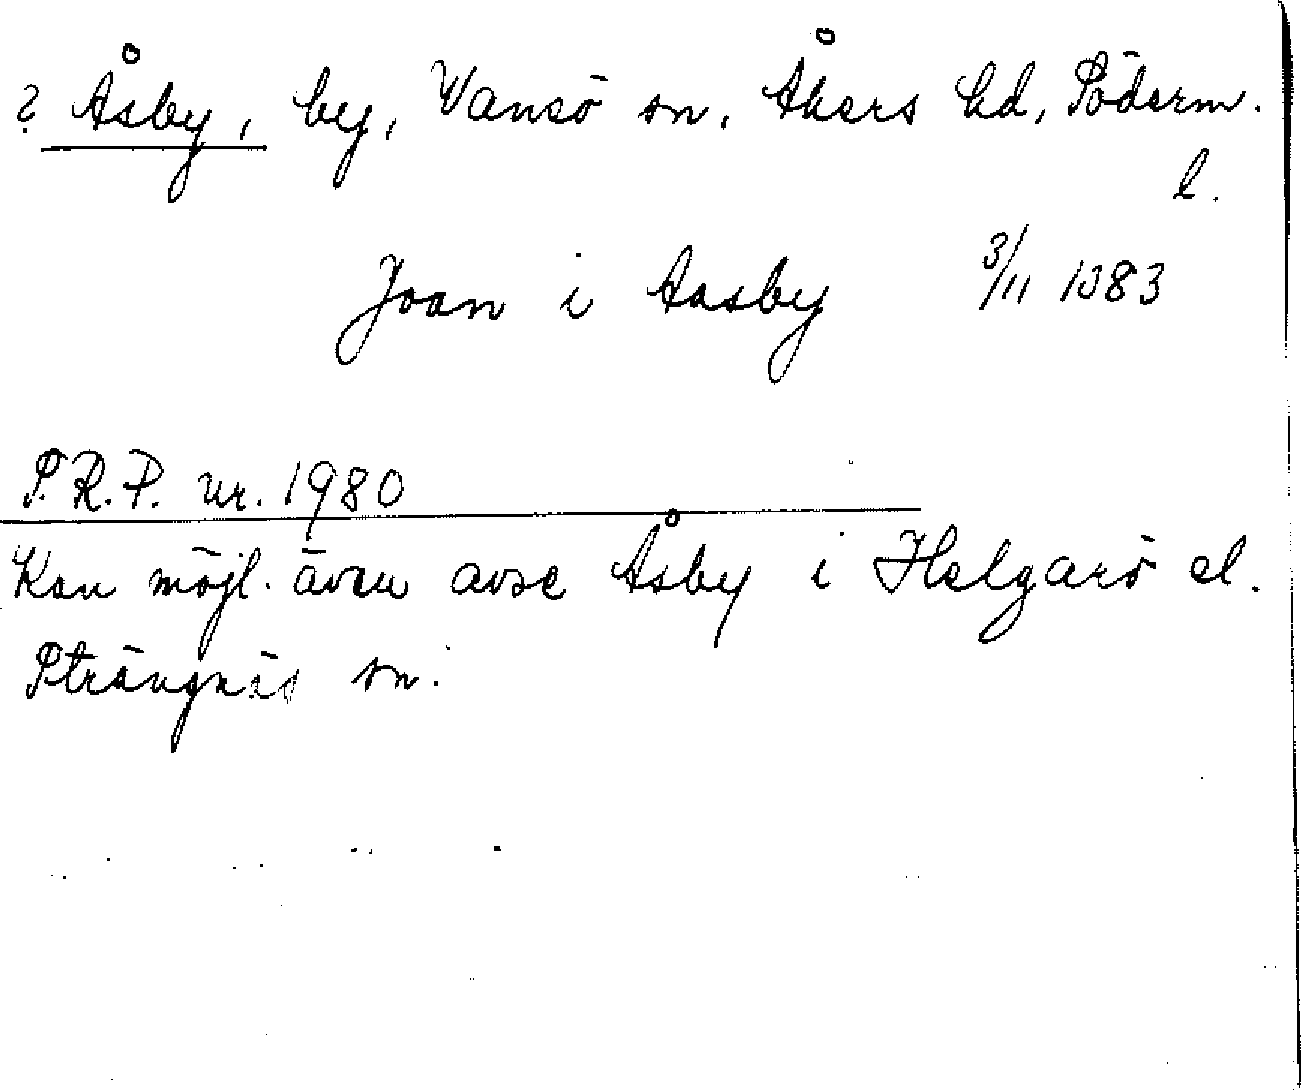 ? Åsby, by, Vansö sn, Åkers hd, Söderm.
l.
Joan i Aasby 3/11 1383
S.R.P. nr. 1980
Kan möjl. även avse Åsby i Helgarö el.
Strängnäs sn.